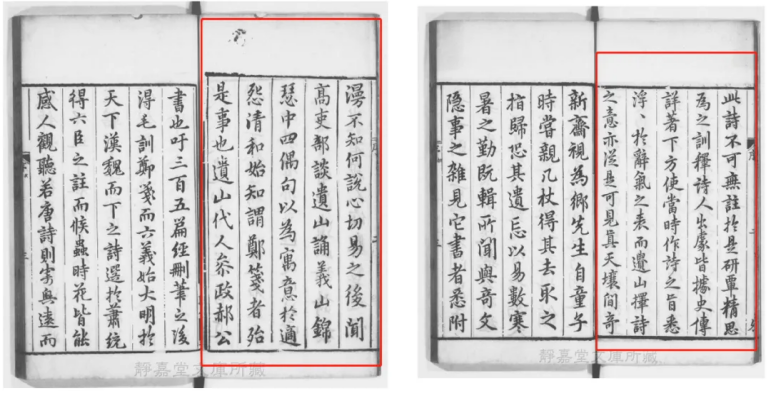 漫不知何說心切易之後聞
高吏部談遺山誦義山錦
瑟中四偶句以為寓意於適
怨清和始知謂鄭箋者殆
是事也遺山代人參政郝公
書也吁三百五篇經刪筆之後
得毛訓鄭箋而六義始大明於
天下漢魏而下之詩選於蕭統
得六臣之註而候蟲時花皆能
感人觀聽若唐詩則寄興遠而
靜嘉堂文庫所藏
此詩不可無註於是研覃精思
為之訓釋詩人出處皆據史傳
詳著下方使當時作詩之旨悉
浮、於辭氣之表而遺山擇詩
之意亦從是可見真天壤間奇
新齋視為鄉先生自童子
時嘗親几杖得其去取之
指歸恐其遺忘以易數寒
暑之勤既輯所聞與奇文
隱事之雜見它書者悉附
靜嘉堂文庫所藏